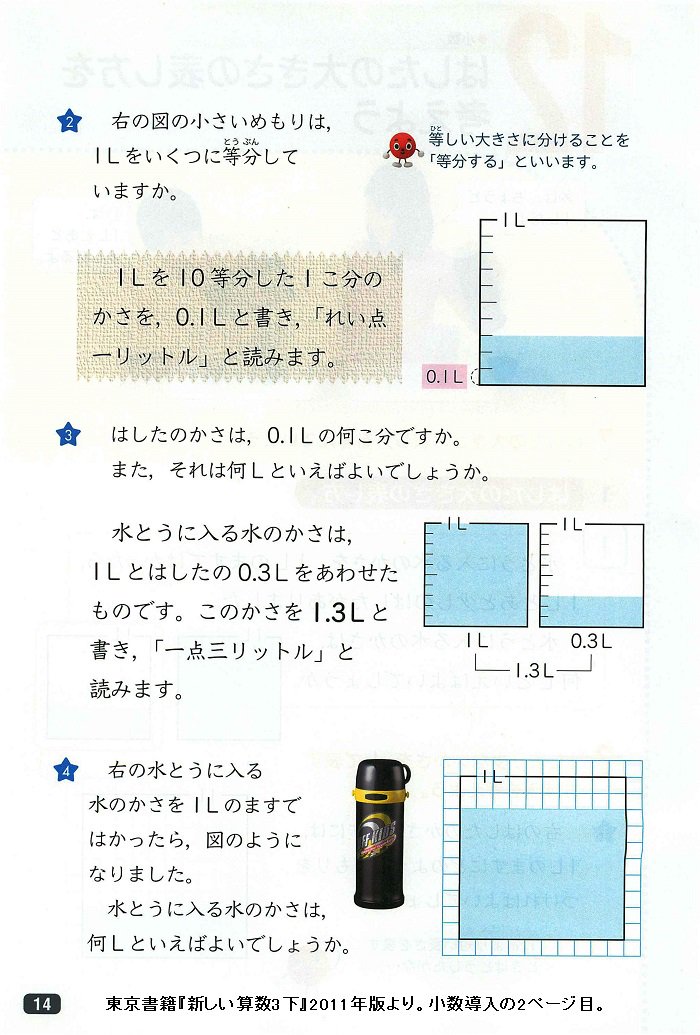 2 右の図の小さいめもりは,
1Lをいくつに等分して
いますか。
等しい大きさに分けることを
「等分する」といいます。
1L
1Lを10等分した1こ分の
かさを, 0.1Lと書き,「れい点
一リットル」と読みます。
0.1L
3 はしたのかさは, 0.1Lの何こ分ですか。
また, それは何Lといえばよいでしょうか。
水とうに入る水のかさは,
1Lとはしたの0.3Lをあわせた
ものです。このかさを1.3Lと
書き,「一点三リットル」と
読みます。
1L 1L
1L 0.3L
1.3L
4 右の水とうに入る
水のかさを1Lのますで
はかったら, 図のように
なりました。
水とうに入る水のかさは,
何Lといえばよいでしょうか。
1L
14 東京書籍『新しい算数3下』2011年版より。小数導入の2ページ目。